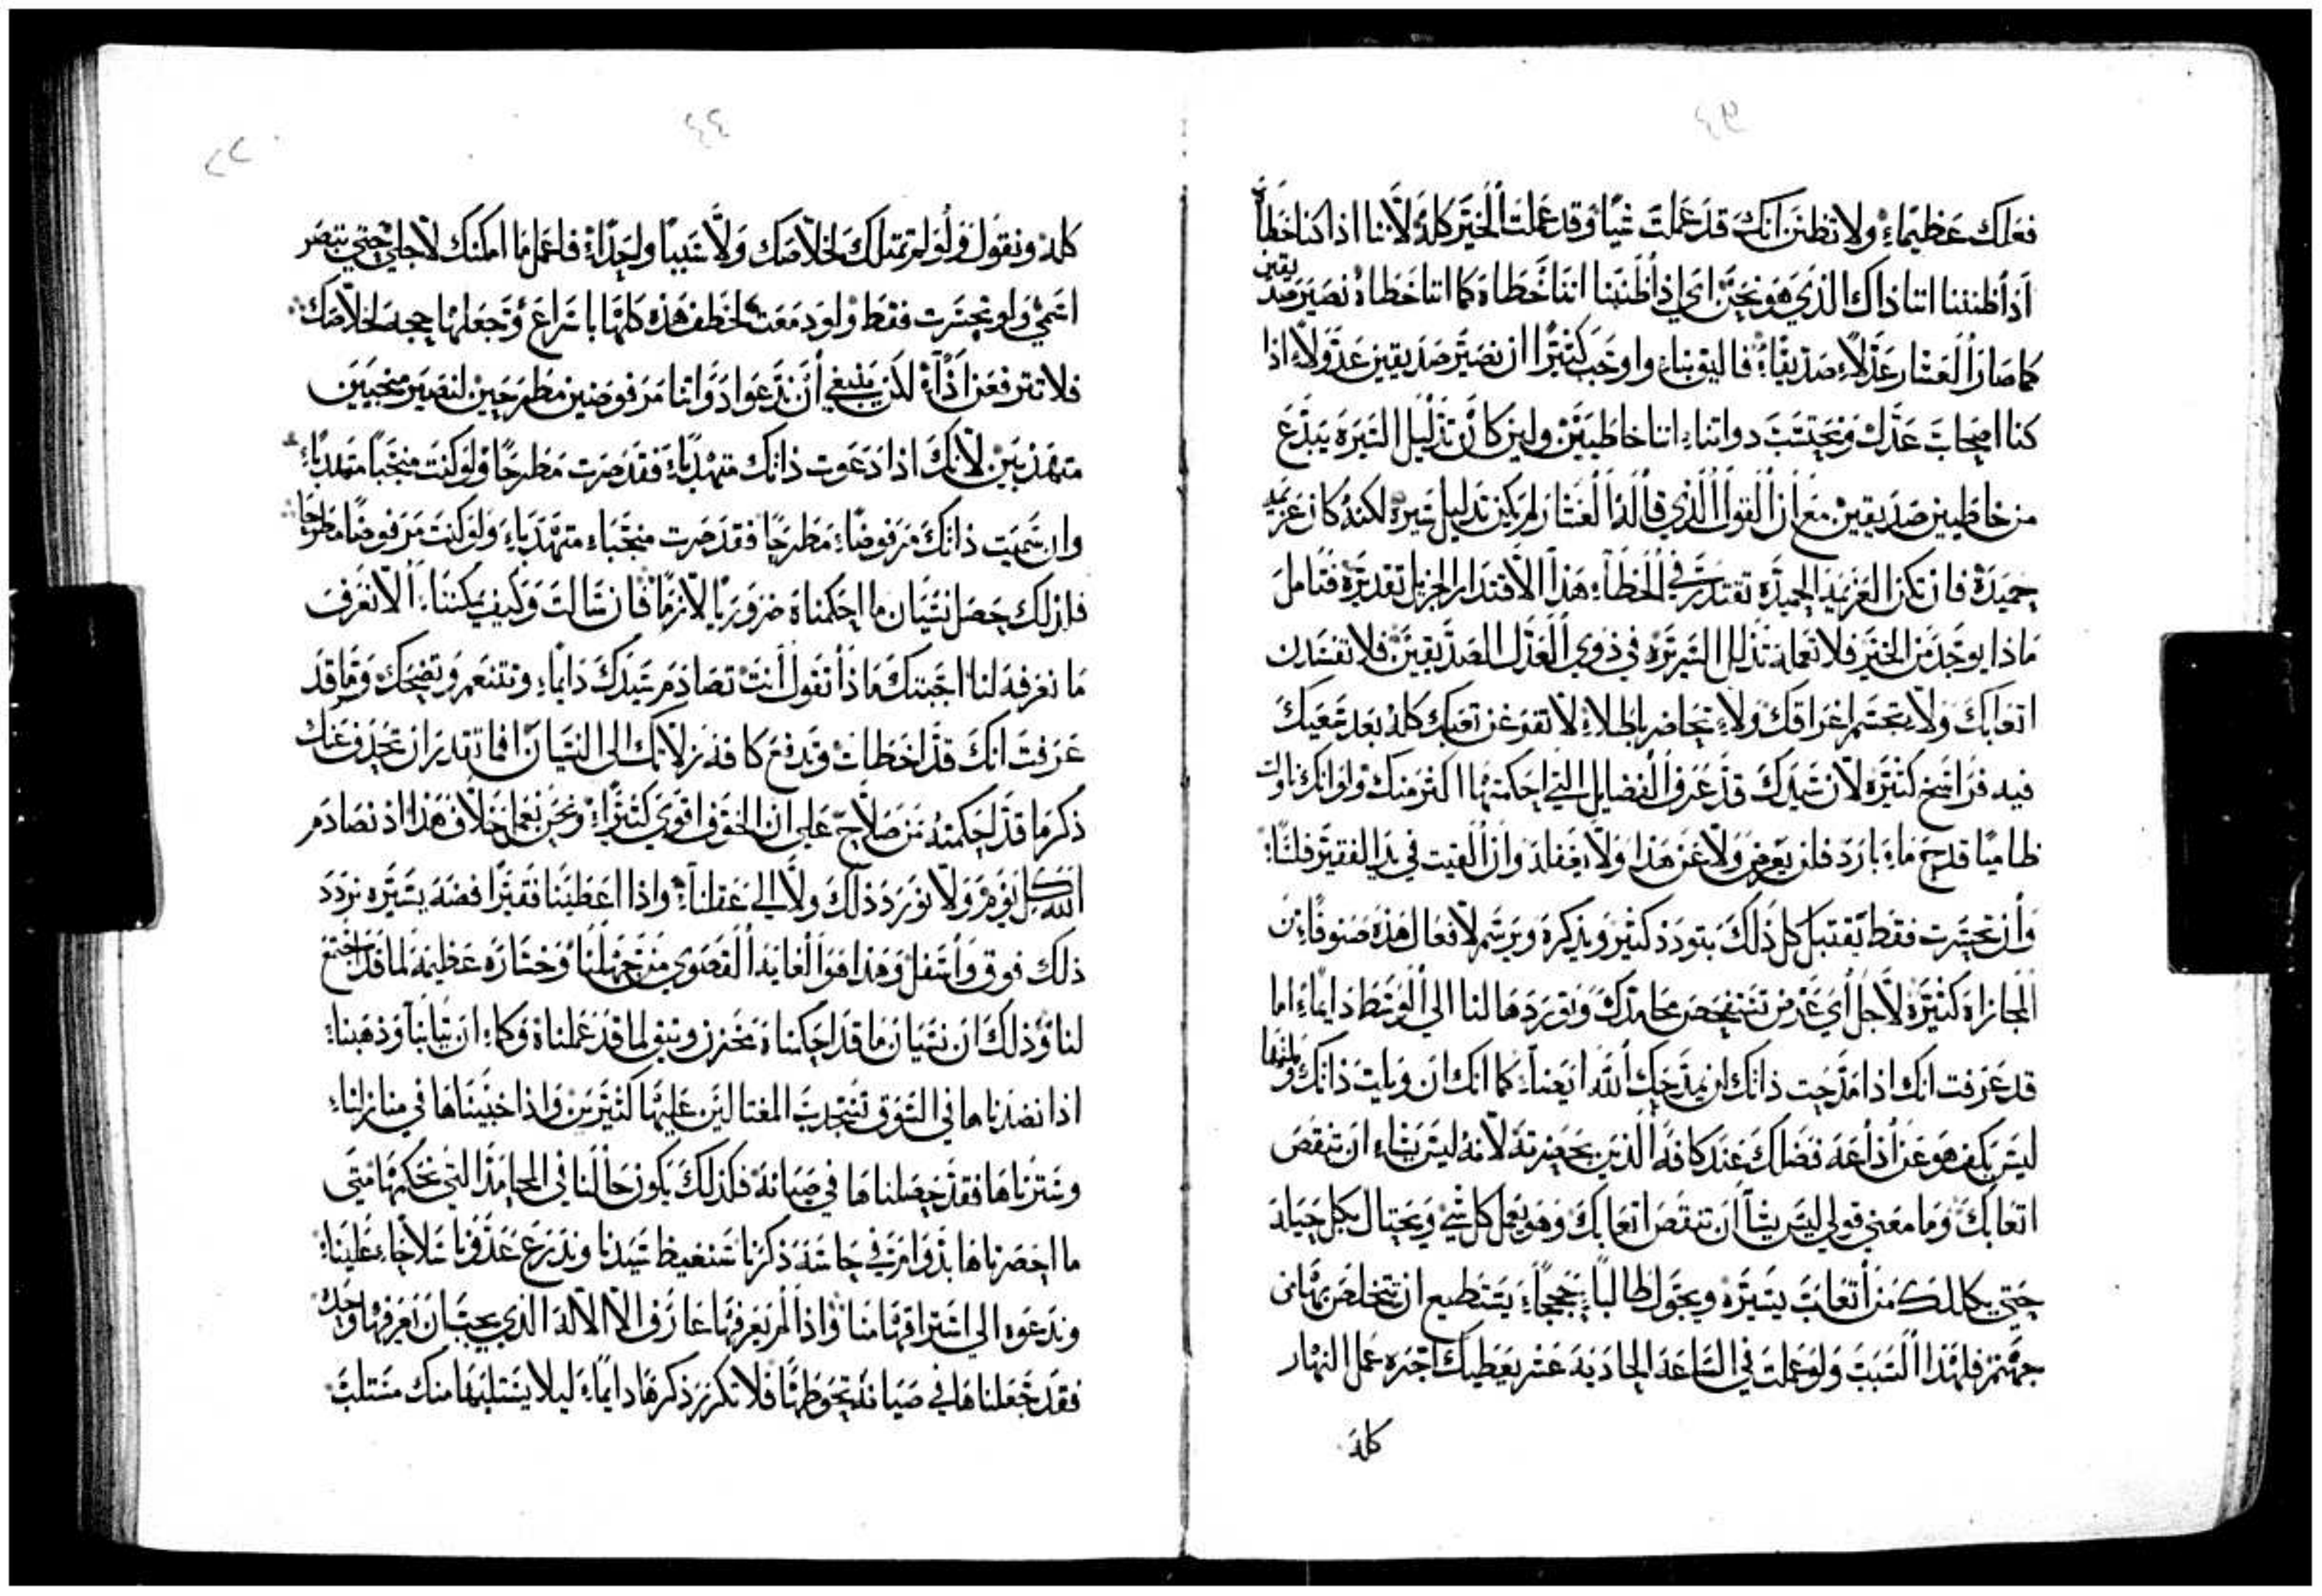 ٤٣
فعلك عظيماً ولا تظنن انك قد عملت شياً وقد عملت الخير كله لاننا اذا كنا خطاة
اذا ظنننا اننا ذاك الذي هو نحن اي اذا ظنننا اننا خطاة كما اننا خطاة نصير صديقين
كما صار العشار عدلاً صديقاً فاليق بنا واوجب كثيراً ان نصير صديقين عدولاً اذا
كنا اصحاب عدل ونحتسب دواتنا اننا خاطيين ولين كان تذليل السيرة يبدع
من خاطيين صديقين مع ان القول الذي قاله العشار لم يكن تذليل سيرة لكنه كان عزيمة
حميدة فان تكن العزيمة الحميدة تقتدر في الخطاة هذا الاقتدار الجزيل تقديره فتامل
ماذا يوجد من الخير فلا تعمله تذلل السيرة في ذوي العدل الصديقين فلا تفسدن
اتعابك ولا يتجشم اعراقك ولا تحاضر باطلاً لا تفرغن تعبك كله بعد سعيك
فيه فراسخ كثيرة لان سيدك قد عرف الفضايل التي احكمتها اكثر منك ولو انك ناولت
ظامياً قدح ماء بارد فلن يعرض ولا عن هذا ولا يغفله وان القيت في يد الفقير فلساً
وان تحسرت فقط يقتبل كل ذلك بتودد كثير ويذكره ويرسم لافعال هذه صنوفاً من
المجازاة كثيرة لاجل أي غرض تستفحص محامدك وتوردها لنا الى الوسط دايماً اما
قد عرفت انك اذا مدحت ذاتك لن يمدحك الله ايضاً كما انك ان ويلت ذاتك ولمتها
ليس يكف هو عن أذاعة فضلك عند كافة الذين بحضرته لانه ليس يشاء ان تنقص
اتعابك وما معنى قولي ليس يشا ان تنقص اتعابك وهو يعمل كل شي ويحتال بكل حيلة
حتى يكللك من أتعاب يسيرة ويجول طالباً حججاً يستطيع ان تتخلص بها من
جهنم فلهذا السبب ولو عملت في الساعة الحادية عشر يعطيك اجرة عمل النهار
كله
٤٤
٢٢
كله ونقول ولو لم تمتلك لخلاصك ولا سبباً واحداً فاعمل ما امكنك لاجلي حتى تبصر
اسمي ولو تحسرت فقط ولو دمعت لخطف هذه كلها باسراع وجعلها حجة لخلاصك
فلا نترفعن اذاً لكن ينبغي أن ندعوا دواتنا مرفوضين مطرحين لنصير منجبين
متهذبين لانك اذا دعوت ذاتك متهذباً فقد صرت مطرحاً ولو كنت منجباً متهذباً
وان سميت ذاتك مرفوضاً مطرحاً فقد صرت منجباً متهذباً ولو كنت مرفوضاً مطرحاً
فلذلك حصل نسيان ما احكمناه ضرورياً لازماً فان سالت وكيف يمكننا ألا نعرف
ما نعرفه لنا اجبتك ماذا تقول أنت تصادم سيدك دايماً وتتنعم وتضحك وما قد
عرفت انك قد اخطات وتدفع كافة زلاتك الى النسيان افما تقدر ان تحذف عنك
ذكر ما قد احكمته من صلاح على ان الخوف اقوى كثيراً ونحن نعمل خلاف هذا اذ نصادم
الله كل يوم ولا نورد ذلك ولا الى عقلنا واذا اعطينا فقيراً فضة يسيرة نردد
ذلك فوق وأسفل وهذا هو الغاية القصوى من جهلنا وخسارة عظيمة لما قد اجتمع
لنا وذلك ان نسيان ما قد احكمناه مخزن وثيق لما قد عملناه وكما ان ثيابنا وذهبنا
اذا نضدناها في السوق نستجدب المغتالين عليها كثيرين واذا خبيناها في منازلنا
وسترناها فقد حصلناها في صيانة فكذلك يكون حالنا في المحامد التي نحكمها متى
ما احضرناها بدوام في حاسة ذكرنا سنغيظ سيدنا وندرع عدونا سلاحاً علينا
وندعوه الى استراقها منا واذا لم يعرفها عارف الا الاله الذي يجب ان يعرفها وحده
فقد جعلناها في صيانة تحوطها فلا تكرر ذكرها دايماً ليلا يستلبها منك مستلب